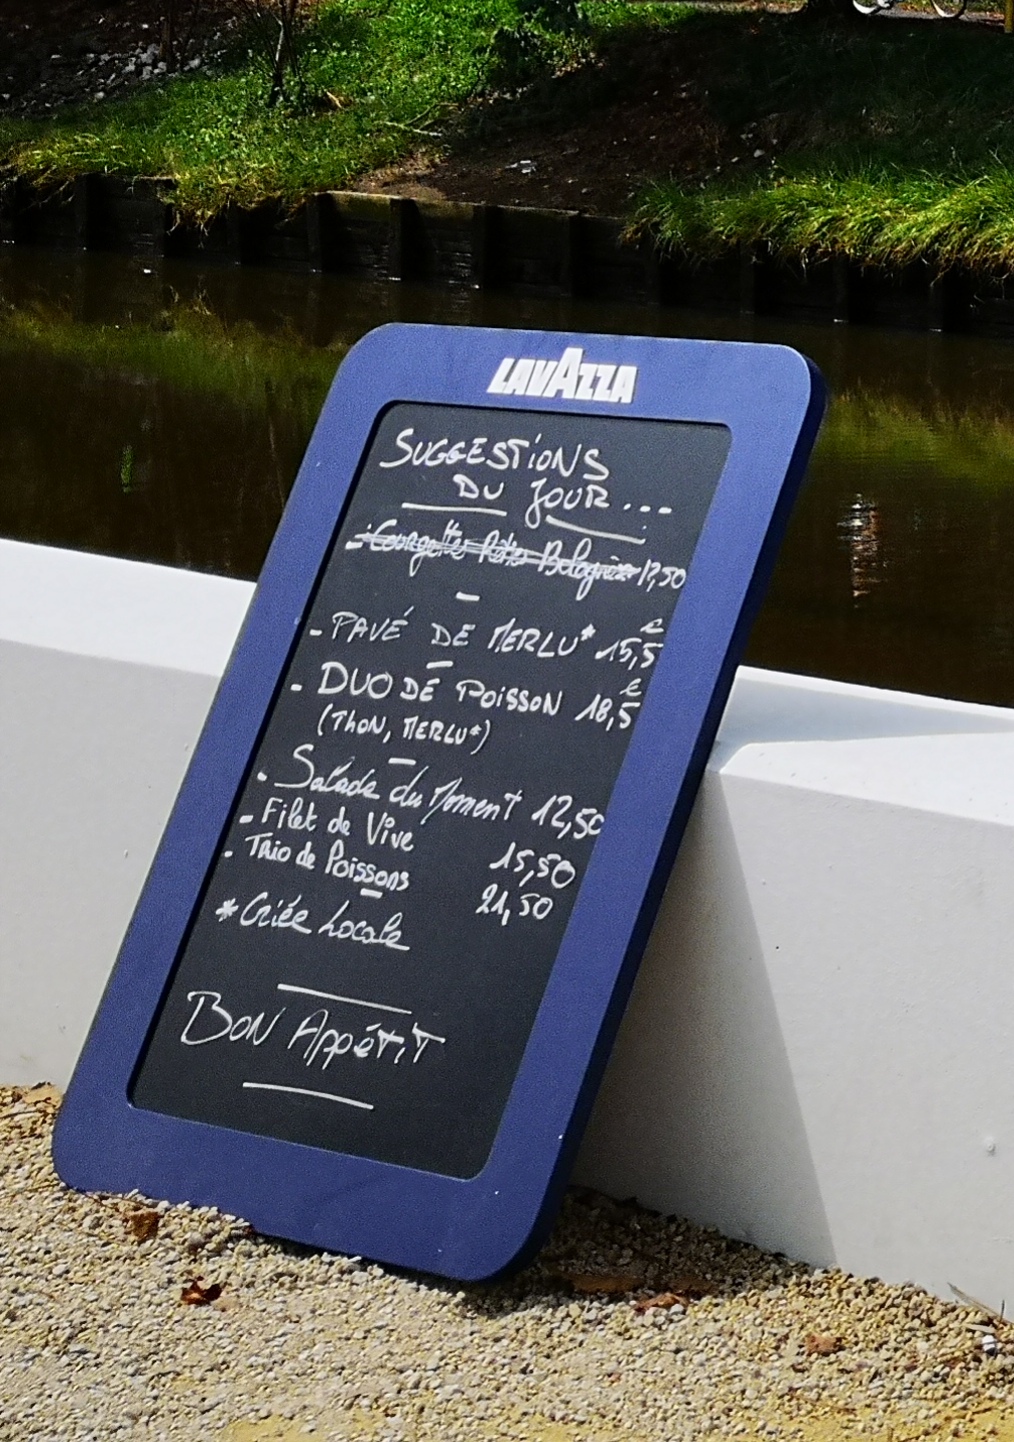 LAVAZZA
SUGGESTIONS
DU JOUR...
- Courgettes Pâtes Bolognèse 17,50
- PAVÉ DE MERLU* 15,5€
- DUO DE POISSON 18,5€
(THON, MERLU*)
- Salade du Moment 12,50
- Filet de Vive 15,50
- Trio de Poissons 21,50
* Criée Locale
BON APPÉTIT